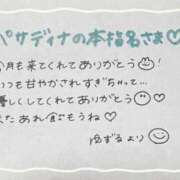 パサディナの本指名さま♡
今月も来てくれてありがとう
いつも甘やかされすぎちゃって…
優しくしてくれてありがとう
またあれ食もうね♡
ゆずるより